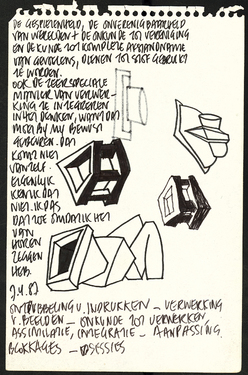 DE GESPLETENHEID, DE ONVERENIGBAARHEID
VAN WERELDEN + DE ONKUNDE TOT VERENIGING
EN DE KUNDE TOT KOMPLETE AFSTANDNAME
VAN GEVOELENS, DIENEN TOT STOF GEBRUIKT
TE WORDEN.
OOK DE ZEER SPECIALE
MANIER VAN VERWER-
KING TE INTEGREREN
IN HET DENKEN, WANT DAT
MOET BIJ MIJ BEWUST
GEBEUREN. DAT
KOMT NIET
VANZELF.
EIGENLIJK
KEN IK DAT
NIET. IK DAS
DAT TOE OMDAT IK HET
VAN
HOREN
ZEGGEN
HEB.
ONTDUBBELING V. INDRUKKEN — VERWERKING
V. BEELDEN — ONKUNDE TOT VERWERKEN,
ASSIMILATIE, INTEGRATIE — AANPASSING.
BLOKKAGES — OBSESSIES